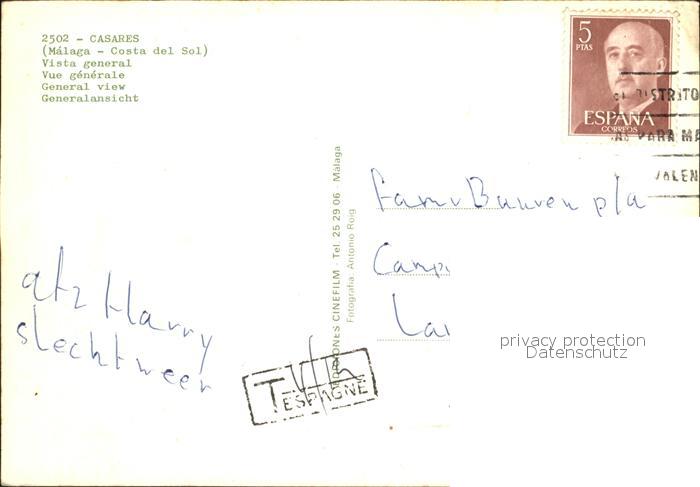 2502 - CASARES
(Málaga - Costa del Sol)
Vista general
Vue générale
General view
Generalansicht
5
PTAS
ESPAÑA
CORREOS
DISTRITO
PARA MA
VALEN
EDICIONES CINEFILM - Tel. 25 29 06 - Málaga
Fotografía: Antonio Roig
Fam v Buuren p/a
Camp
La
privacy protection
Datenschutz
atz Harry
slecht weer
T ESPAGNE